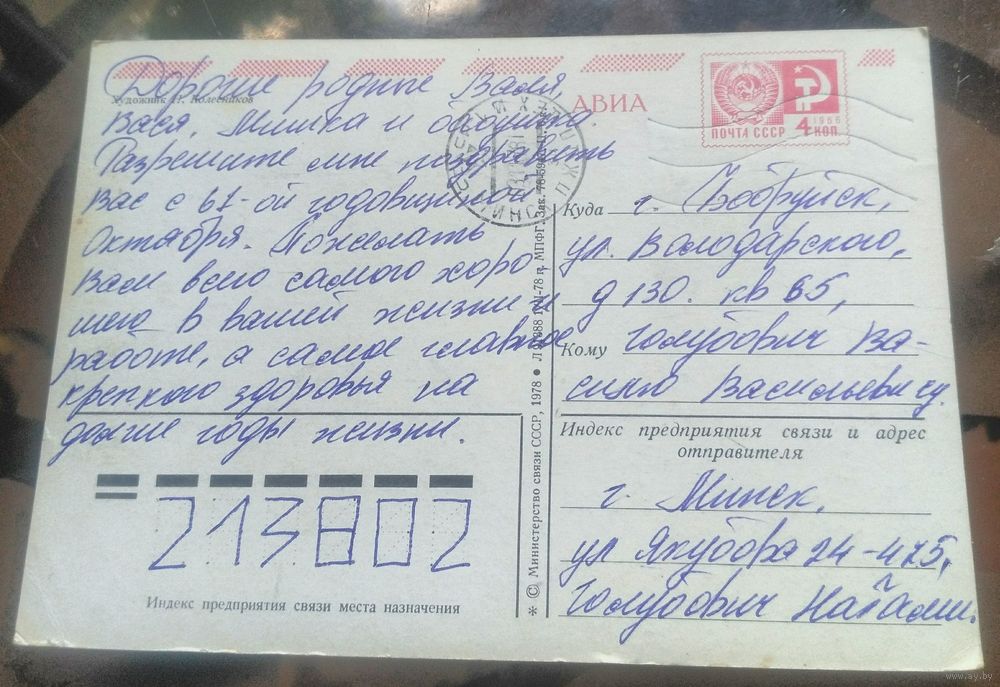 Дорогие родные Валя,
Вася, Мишка и
Разрешите мне поздравить
Вас с 61-ой годовщиной
Октября. Пожелать
Вам всего самого хоро-
шего в вашей жизни и
работе, а самое главное
крепкого здоровья на
долгие годы жизни.
Художник П. Колесников
213802
Индекс предприятия связи места назначения
* © Министерство связи СССР, 1978 ●
МПФГ. Зак.
АВИА
ПОЧТА СССР
1966
4 КОП.
Куда г. Бобруйск,
ул. Володарского,
д 130. кв 65,
Кому Голубович Ва-
силию Васильевичу.
Индекс предприятия связи и адрес
отправителя
г. Минск,
ул Якубова 24-475,
Голубович
www.ay.by